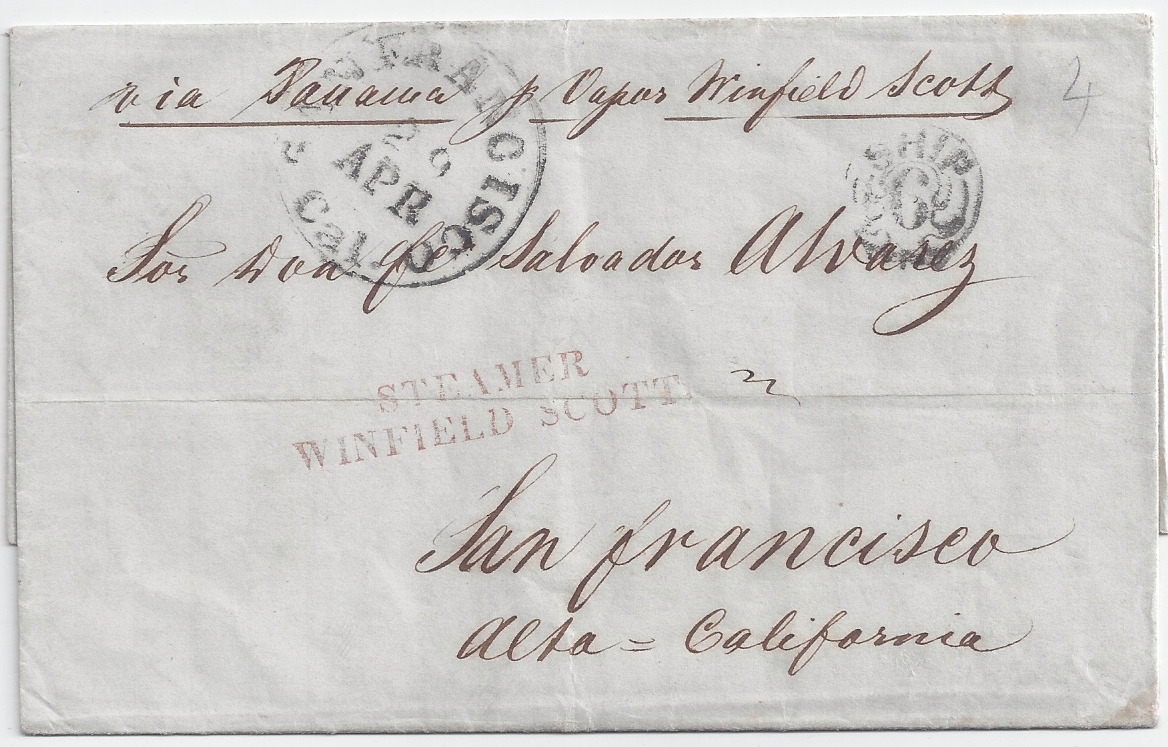 via Panama p Vapor Winfield Scott
4
SAN FRANCISCO
26
APR
Cal.
SHIP
6
Sor Don Je Salvador Alvarez
STEAMER
WINFIELD SCOTT.
San francisco
Alta = California